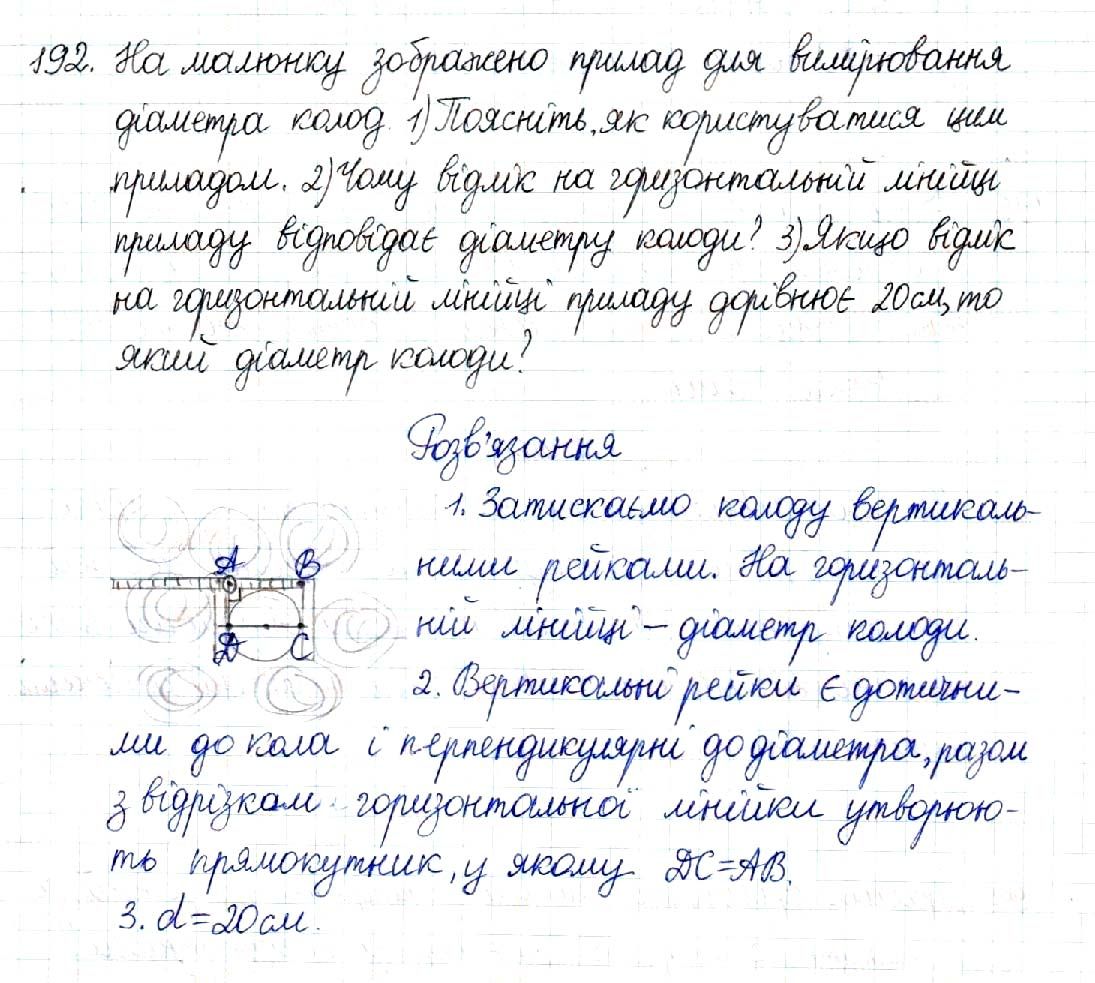 192. На малюнку зображено прилад для вимірювання
діаметра колод. 1) Поясніть, як користуватися цим
приладом. 2) Чому відлік на горизонтальній лінійці
приладу відповідає діаметру колоди? 3) Якщо відлік
на горизонтальній лінійці приладу дорівнює 20 см, то
який діаметр колоди?
Розв'язання
1. Затискаємо колоду вертикаль-
ними рейками. На горизонталь-
ній лінійці – діаметр колоди.
A B
D C
2. Вертикальні рейки є дотични-
ми до кола і перпендикулярні до діаметра, разом
з відрізком горизонтальної лінійки утворюю-
ть прямокутник, у якому DC=AB.
3. d=20см.